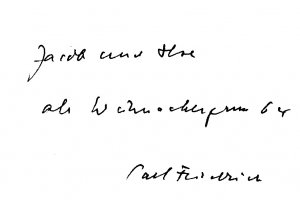 Jacob und Ilse
als Weihnachtsgruss 64
Carl Friedrich